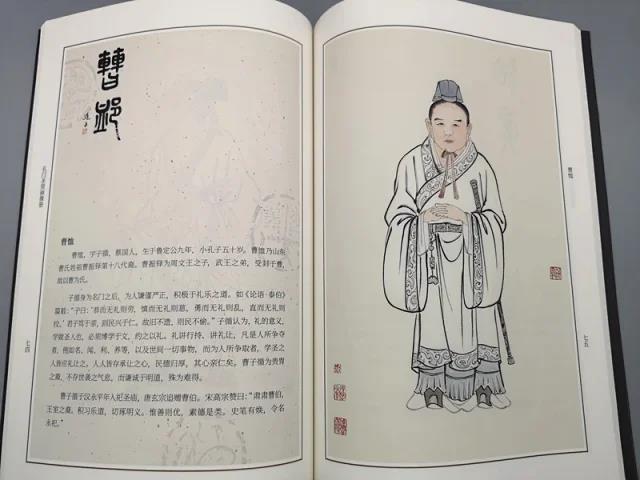 曹恤
曹恤，字子循，蔡国人，生于鲁定公九年，小孔子五十岁。曹恤乃山东
曹氏始祖曹振铎第十八代裔。曹振铎为周文王之子，武王之弟，受封于曹，
故以曹为氏。
子循身为名门之后，为人谦谨严正，积极于礼乐之道。如《论语·泰伯》
篇载：“子曰：‘恭而无礼则劳，慎而无礼则葸，勇而无礼则乱，直而无礼则
绞。’君子笃于亲，则民兴于仁。故旧不遗，则民不偷。”子循认为，礼的意义，
学做圣人也，必须博学于文，约之以礼。礼讲行持、讲礼让，凡是人所争夺
者，他如名、闻、利、养等，以及世间一切事物，而为人所争取者，学圣之
人皆应礼让之，人人皆存承让之心，民德归厚，其心亲仁矣。曹子循为贵胄
之裔，不存世袭之气息，而谦诚于明道，殊为难得。
曹子循于汉永平年入祀圣庙，唐玄宗追赠曹伯。宋高宗赞曰：“肃肃曹伯，
王室之裔，积习乐道，切琢明义。惟善则优，素德是类。史笔有焕，令名
永祀。”
七四
曹恤
七五